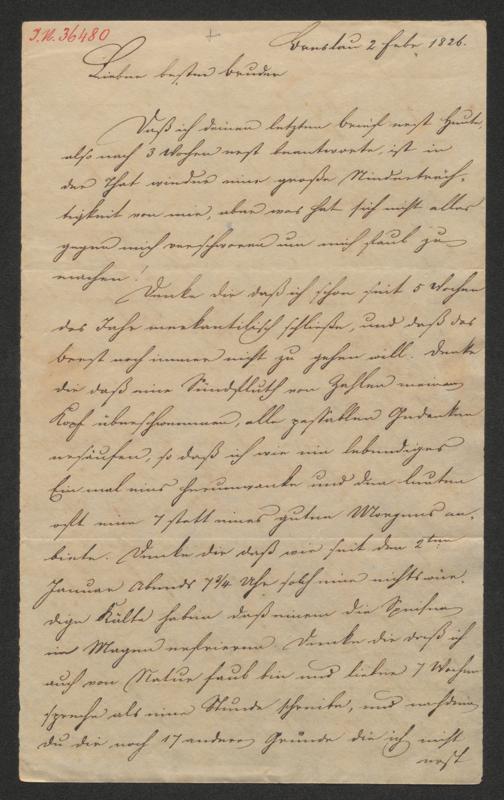 J.N. 36480
Breslau 2 Febr 1826.
Liebster bester Bruder
Daß ich deinen letzten Brief erst heute,
also nach 3 Wochen erst beantworte, ist in
der That wieder eine große Niederträch-
tigkeit von mir, aber was hat sich nicht alles
gegen mich verschworen um mich faul zu
machen!
Denke dir daß ich schon seit 5 Wochen
das Jahr merkantilisch schließe, und daß das
Beest noch immer nicht zu gehen will. Denke
dir daß eine Sündfluth von Zahlen meinen
Kopf überschwemmen, alle Gedanken
ersäufen, so daß ich wie ein lebendiges
Ein mal eins herumwanke und den Leuten
oft eine 7 statt eines guten Morgens an-
biete. Denke dir daß wir seit den 2ten
Januar Abends 7¾ Uhr solch eine nichtswür-
dige Kälte haben daß einem die Speisen
im Magen erfrieren. Denke dir daß ich
auch von Natur faul bin und lieber 7 Wochen
spreche als eine Stunde schreibe, und nachdem
du dir noch 17 andere Gründe die ich nicht
erst